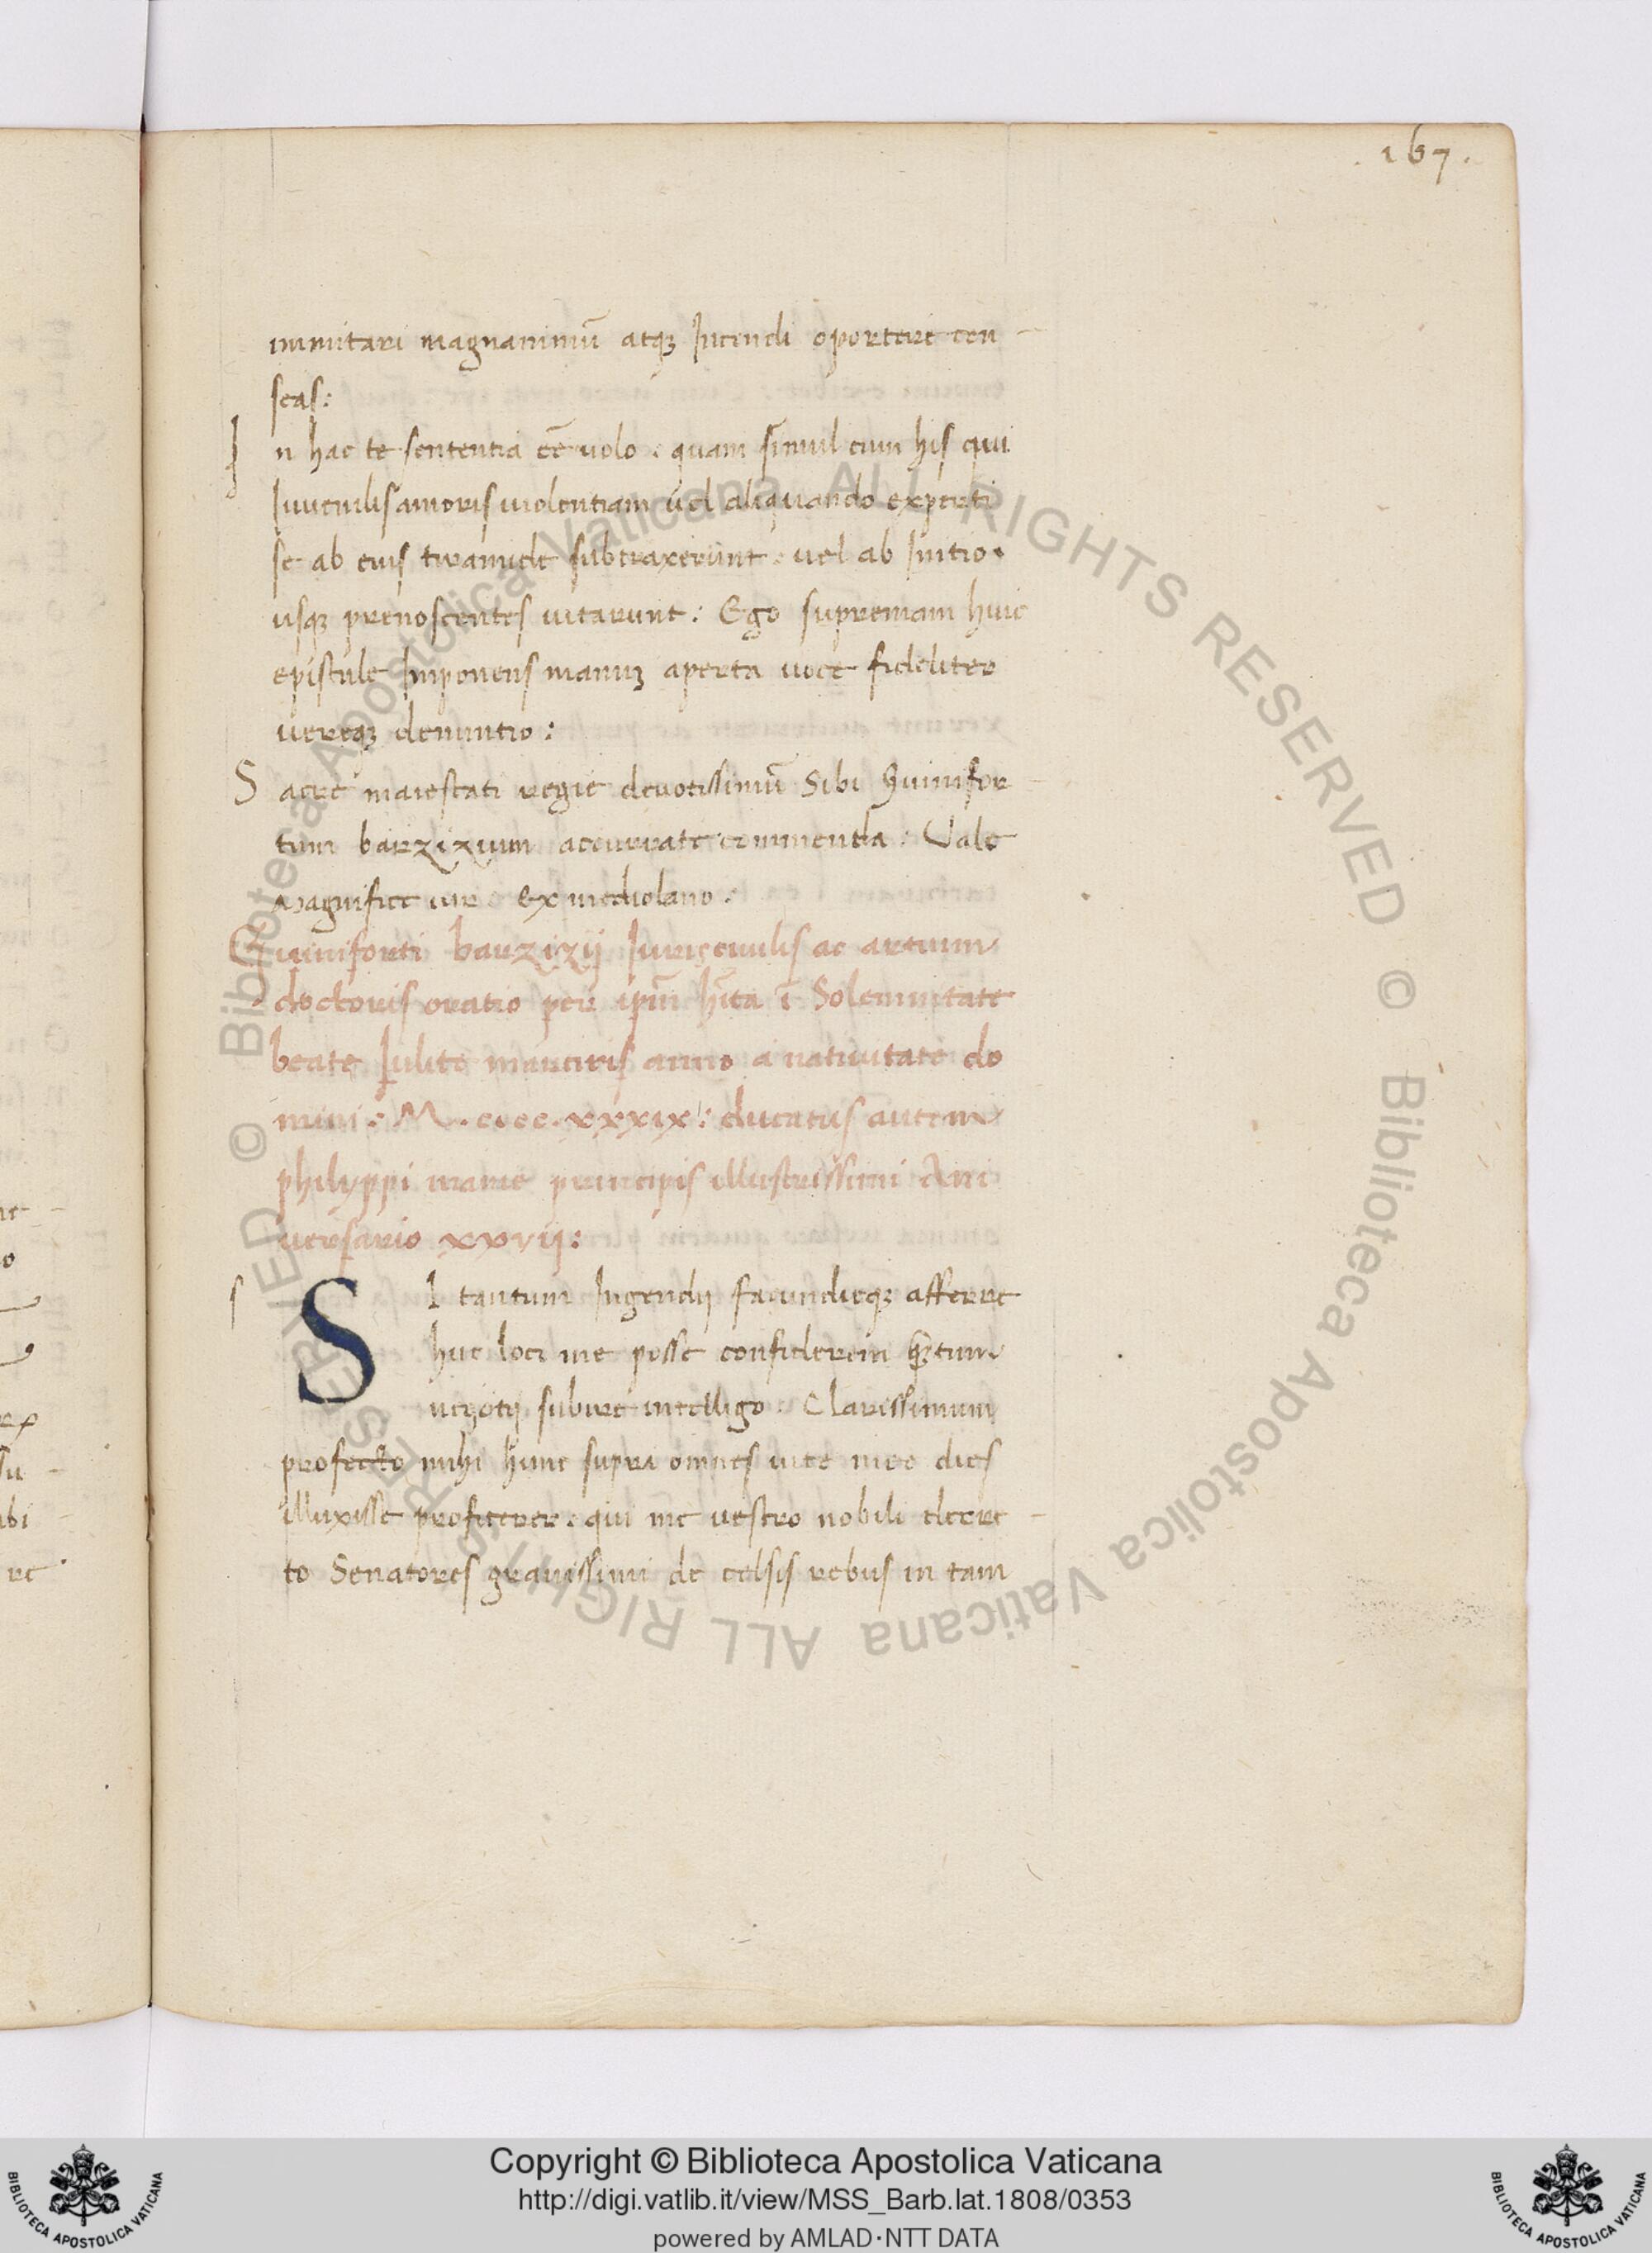 .167.
immitari magnanimū atqꝫ Incendi oportere cen-
seas:
In hac te sententia eē uolo. quam simul cum his qui
Iuuenilis amoris uiolentiam uel aliquando experti
se ab eius tiramide subtraxerunt. uel ab Initio.
usqꝫ prenoscentes uitarunt: Ego supremam huic
epistule Imponens manuꝫ aperta uoce fideliter
uereqꝫ denuntio:
Sacre maiestati regie deuotissimū Sibi Guinifor-
tum barzizium accurrate commenda. Vale
Magnifice uir. ex mediolano.
Guiniforti barzizij Iuris ciuilis ac artium
doctoris oratio per ipm̄ hīta ī Solemnitate
beate Iulite martiris anno a natiuitate do
mini: M. cccc. xxxix: ducatus autem
philyppi marie principis illustrissimi Ani
uersario xxvij:
s
SI tantum Ingendij facundieqꝫ afferre
huc loci me posse confiderem qꝫtum
negotij subire intelligo. Clarissimum
profecto mihi hunc supra omnes uite mee dies
illuxisse profiterer. qui me uestro nobili decre-
to Senatores grauissimi de celsis rebus in tam
ne-
o
su-
ibi
re.
© Biblioteca Apostolica Vaticana ALL RIGHTS RESERVED © Biblioteca Apostolica Vaticana ALL RIGHTS RESERVED
BIBLIOTECA APOSTOLICA VATICANA
Copyright © Biblioteca Apostolica Vaticana
http://digi.vatlib.it/view/MSS_Barb.lat.1808/0353
powered by AMLAD·NTT DATA
BIBLIOTECA APOSTOLICA VATICANA